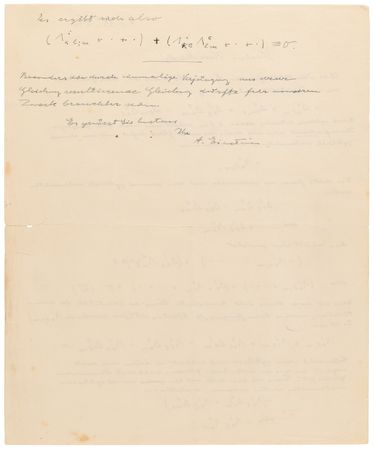 Es ergibt sich also
(Λ^i_{κl;m} + · + ·) + (Λ^i_{κσ} Λ^σ_{lm} + · + ·) ≡ 0.
Besonders die durch einmalige Verjüngung aus dieser
Gleichung resultierende Gleichung dürfte für unseren
Zweck brauchbar sein.
Es grüsst Sie bestens
Ihr
A. Einstein